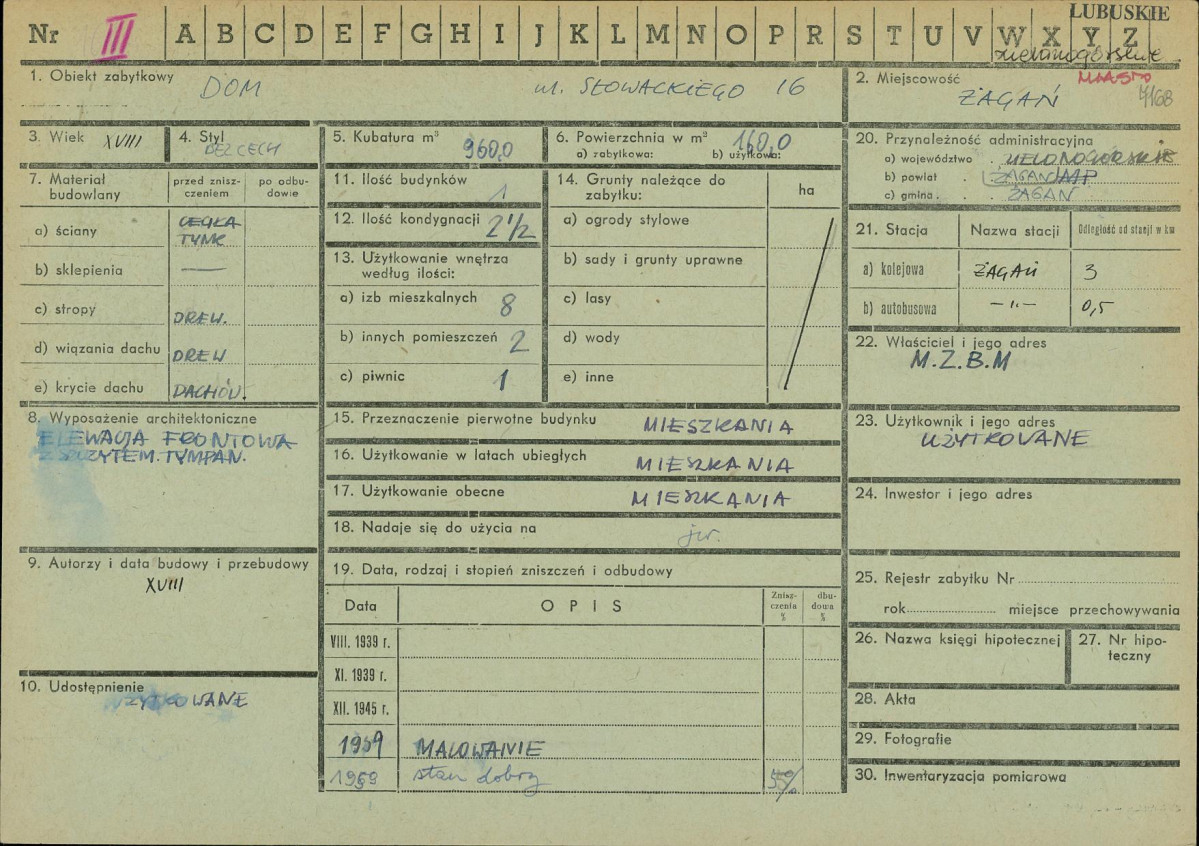 LUBUSKIE
Nr III A B C D E F G H I J K L M N O P R S T U V W X Y Z
zielonogórskie
1. Obiekt zabytkowy DOM ul. SŁOWACKIEGO 16
2. Miejscowość MIASTO
ŻAGAŃ 7168
3. Wiek XVIII
4. Styl BEZ CECH
5. Kubatura m³ 960,0
6. Powierzchnia w m² 160,0
a) zabytkowa: b) użytkowa:
7. Materiał budowlany
przed zniszczeniem
po odbudowie
a) ściany CEGŁA
TYNK
b) sklepienia —
c) stropy DREW.
d) wiązania dachu DREW
e) krycie dachu DACHÓW.
8. Wyposażenie architektoniczne
ELEWACJA FRONTOWA
Z SZCZYTEM. TYMPAN.
9. Autorzy i data budowy i przebudowy
XVIII
10. Udostępnienie
UŻYTKOWANE
11. Ilość budynków 1
12. Ilość kondygnacji 2 1/2
13. Użytkowanie wnętrza
według ilości:
a) izb mieszkalnych 8
b) innych pomieszczeń 2
c) piwnic 1
14. Grunty należące do
zabytku: ha
a) ogrody stylowe
b) sady i grunty uprawne
c) lasy
d) wody
e) inne
15. Przeznaczenie pierwotne budynku MIESZKANIA
16. Użytkowanie w latach ubiegłych MIESZKANIA
17. Użytkowanie obecne MIESZKANIA
18. Nadaje się do użycia na jw.
19. Data, rodzaj i stopień zniszczeń i odbudowy
Data OPIS Zniszczenia % dbudowa %
VIII. 1939 r.
XI. 1939 r.
XII. 1945 r.
1959 MALOWANIE
1959 stan dobry 5%
20. Przynależność administracyjna
a) województwo . ZIELONOGÓRSKIE
b) powiat . ŻAGAŃ
c) gmina . ŻAGAŃ
21. Stacja Nazwa stacji Odległość od stacji w km
a) kolejowa ŻAGAŃ 3
b) autobusowa —"— 0,5
22. Właściciel i jego adres
M.Z.B.M
23. Użytkownik i jego adres
UŻYTKOWANE
24. Inwestor i jego adres
25. Rejestr zabytku Nr
rok miejsce przechowywania
26. Nazwa księgi hipotecznej
27. Nr hipoteczny
28. Akta
29. Fotografie
30. Inwentaryzacja pomiarowa